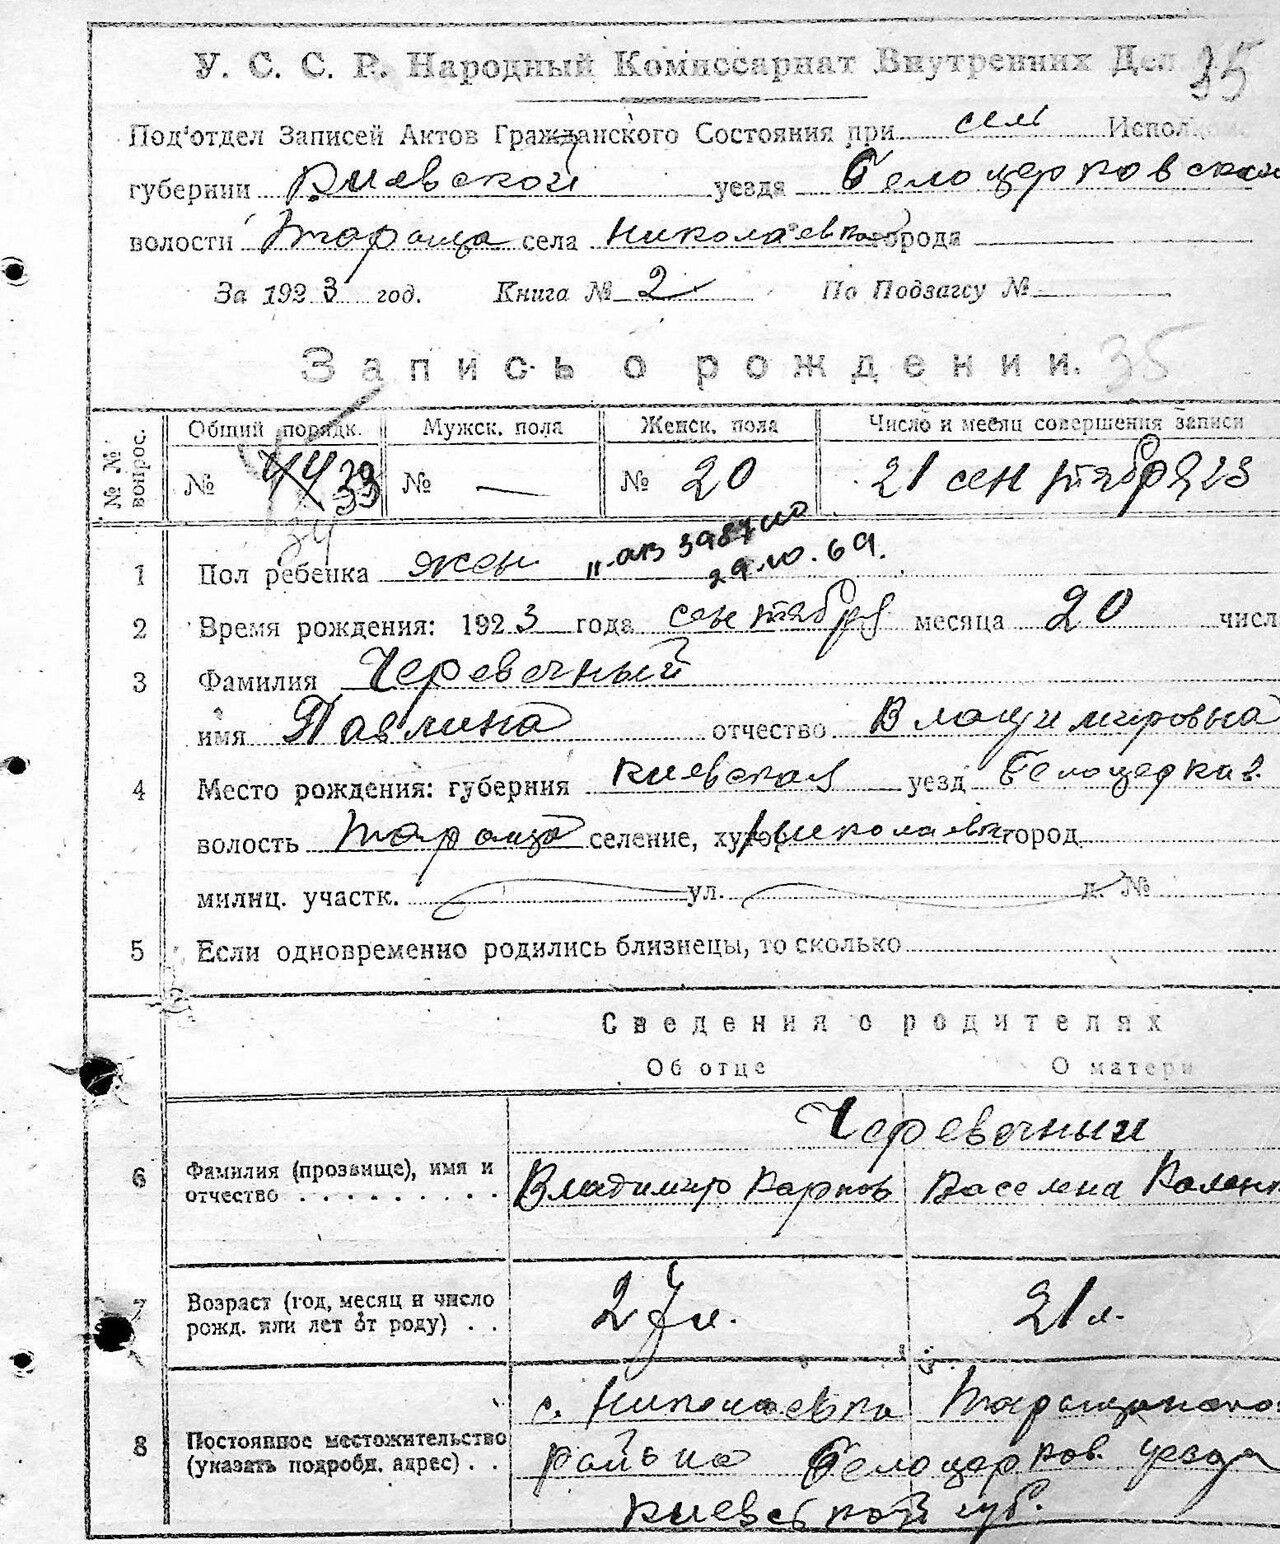 У. С. С. Р. Народный Комиссариат Внутренних Дел 35
Под'отдел Записей Актов Гражданского Состояния при сель Исполкоме
губернии Киевской уезда Белоцерковской
волости Тараща села Николаевка города
За 1923 год. Книга № 2 По Подзагсу №
Запись о рождении. 35
№ № вопрос. Общий порядк. Мужск. пола Женск. пола Число и месяц совершения записи
№ 44 39 33 № — № 20 21 сентября 23
34
1 Пол ребенка жен
29.10.69.
2 Время рождения: 1923 года сентября месяца 20 числ
3 Фамилия Черевечный
имя Павлина отчество Владимировна
4 Место рождения: губерния Киевская уезд Белоцерков.
волость Тараща селение, хутор Николаевка город
милиц. участк. ул. д. №
5 Если одновременно родились близнецы, то сколько
Сведения о родителях
Об отце О матери
Черевечный
6 Фамилия (прозвище), имя и
отчество . . . . . . . . . Владимир Карпов Васелена Калень
7 Возраст (год, месяц и число
рожд. или лет от роду) . . 27 л. 21 л.
с. Николаевка Таращанско
8 Постоянное местожительство
(указать подробн. адрес) . . района Белоцерков. уезда
Киевской губ.